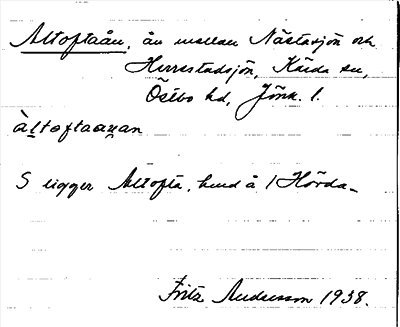 Altoftaån, ån mellan Nästasjön och
Herrestadsjön, Kärda sn,
Östbo hd, Jönk. l.
àltoftaaṇan
S ligger Altofta, hmd å 1 Hörda_
Fritz Andersson 1938.